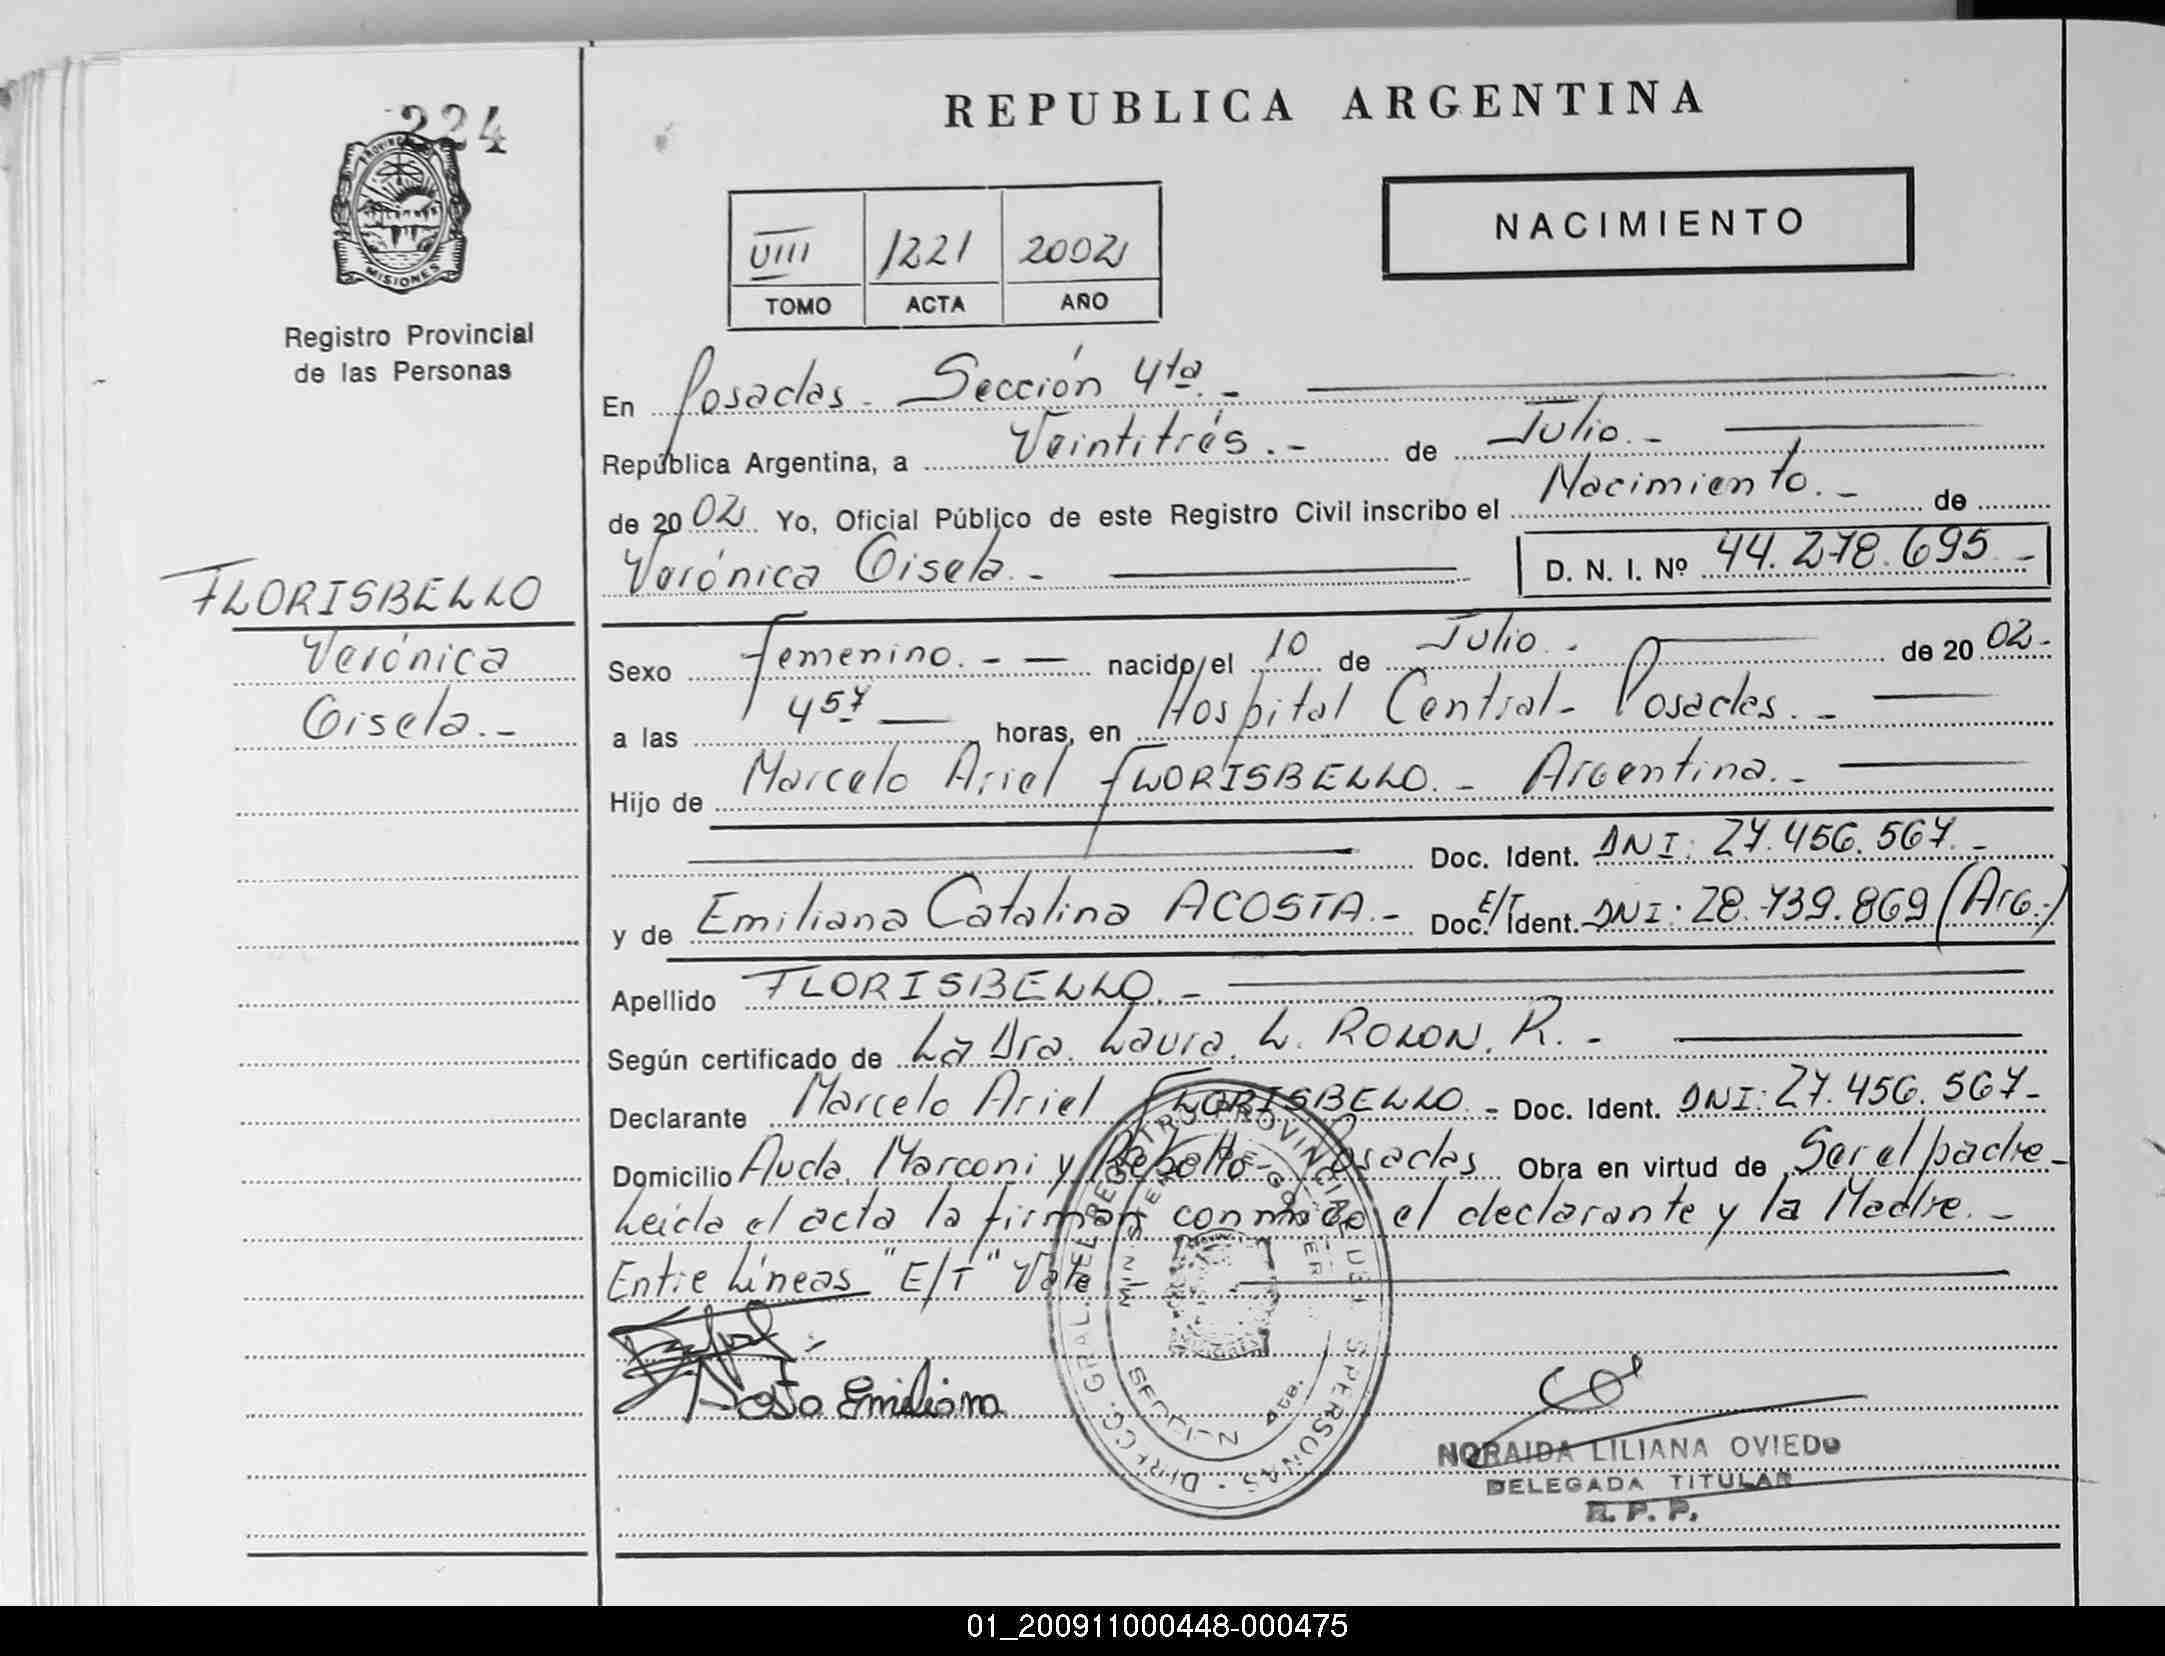 224
PROVINCIA
MISIONES
Registro Provincial
de las Personas
REPUBLICA ARGENTINA
NACIMIENTO
VIII 1221 2002
TOMO ACTA AÑO
En Posadas - Sección 4ta. -
República Argentina, a Veintitrés. - de Julio. -
de 20 02 Yo, Oficial Público de este Registro Civil inscribo el Nacimiento. - de
Verónica Gisela. - D. N. I. Nº 44.278.695 -
FLORISBELLO
Verónica
Gisela. -
Sexo Femenino. - - nacido el 10 de Julio. - de 20 02 -
a las 4 57 horas, en Hospital Central - Posadas. -
Hijo de Marcelo Ariel FLORISBELLO. - Argentina. -
Doc. Ident. DNI: 27.456.567. -
y de Emiliana Catalina ACOSTA. - Doc. E/T Ident. DNI: 28.739.869 (Arg.-)
Apellido FLORISBELLO. -
Según certificado de La Dra. Laura. L. ROLON. R. -
Declarante Marcelo Ariel FLORISBELLO. - Doc. Ident. DNI: 27.456.567 -
Domicilio Avda. Marconi y Posadas Obra en virtud de Ser el padre -
Leída el acta la firman conmigo el declarante y la Madre. -
Entre Líneas "E/T" Vale
Acosta Emiliana
NORAIDA LILIANA OVIEDO
DELEGADA TITULAR
R. P. P.
01_200911000448-000475